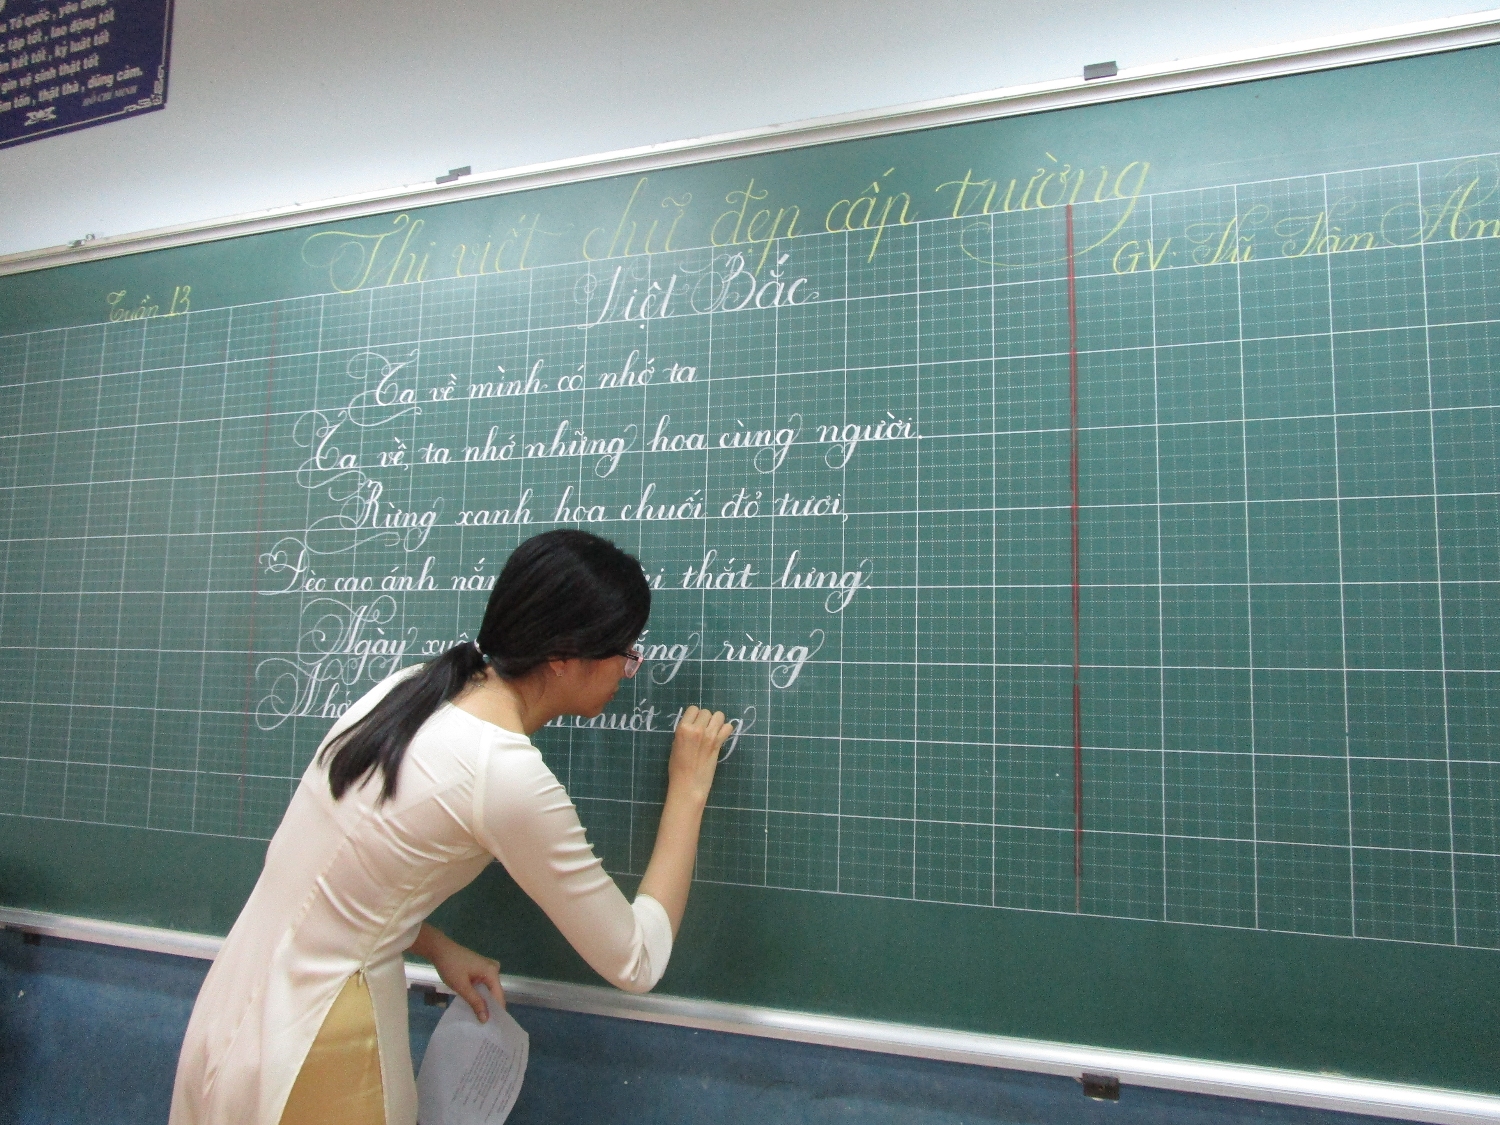 Tổ quốc, yêu đồng
tập tốt, lao động tốt
kết tốt, kỷ luật tốt
gìn vệ sinh thật tốt
tốn, thật thà, dũng cảm.
HỒ CHÍ MINH
Thi viết chữ đẹp cấp trường
Tuần 13
GV: Lũ Tân An
Việt Bắc
Ta về mình có nhớ ta
Ta về, ta nhớ những hoa cùng người.
Rừng xanh hoa chuối đỏ tươi,
Đèo cao ánh thắt lưng.
Ngày rừng
Nhớ chuốt